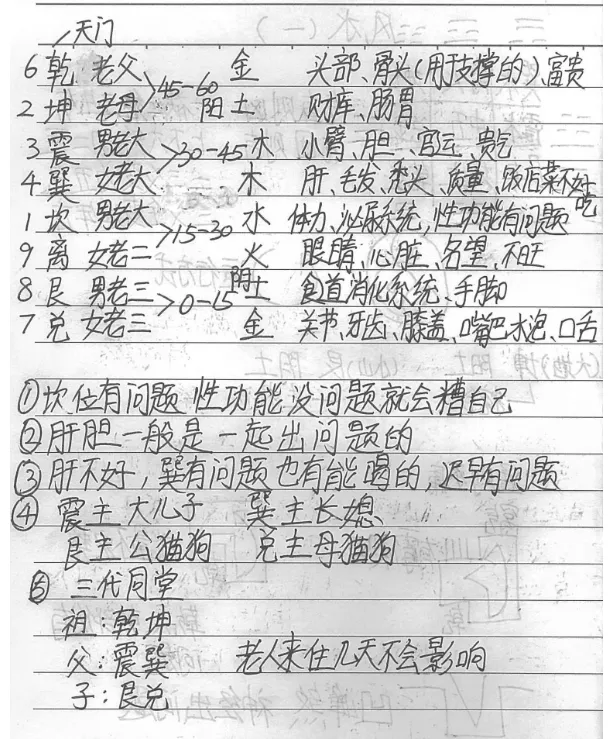 天门
6 乾 老父 >45-60 金 头部、骨头(用于支撑的)、富贵
2 坤 老母 阳土 财库、肠胃
3 震 男老大 >30-45 木 小臂、胆、官运、贵气
4 巽 女老大 木 肝、毛发、秃头、质量、饭店菜不好吃
1 坎 男老大 >15-30 水 体力、泌尿系统,性功能有问题
9 离 女老二 火 眼睛、心脏、名望、不旺
8 艮 男老三 >0-15 阴土 食道消化系统、手脚
7 兑 女老三 金 关节、牙齿、膝盖、嘴巴水泡、口舌
①坎位有问题 性功能没问题就会糟自己
②肝胆一般是一起出问题的
③肝不好,巽有问题也有能喝的,迟早有问题
④ 震主大儿子 巽主长媳
艮主公猫狗 兑主母猫狗
⑤ 三代同堂
祖:乾坤
父:震巽 老人来住几天不会影响
子:艮兑